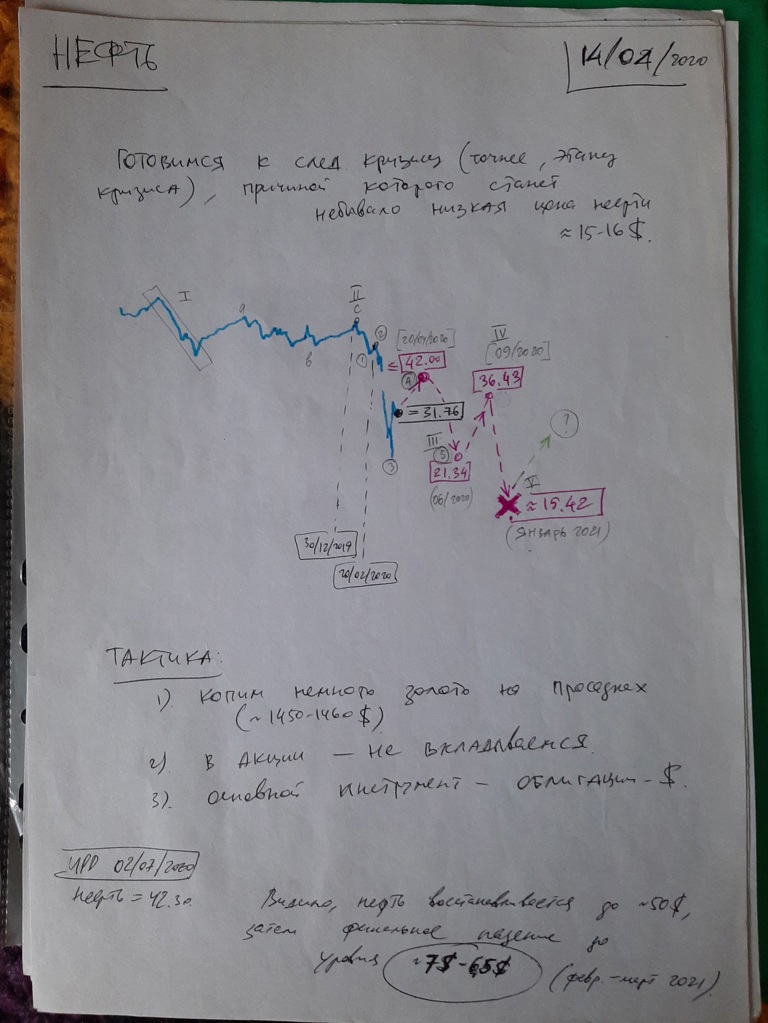 НЕФТЬ
14/04/2020
Готовимся к след кризису (точнее, этапу
кризиса), причиной которого станет
небывало низкая цена нефти
≈ 15-16$.
I
a
b
II
c
1
2
[20/04/2020]
≤ 42.00
4
= 31.76
3
III
5
21.34
(06/2020)
IV
[09/2020]
36.43
?
V
≈ 15.42
(январь 2021)
30/12/2019
20/02/2020
ТАКТИКА:
1). копим немного золото на просадках
(~1450-1460$)
2). в Акции — НЕ вкладываемся.
3). основной инструмент — ОБЛИГАЦИИ - $.
UPD 02/07/2020
Нефть = 42.30.
Видимо, нефть восстанавливается до ~50$,
затем финальное падение до
уровня ~7$-6,5$ (февр.-март 2021)